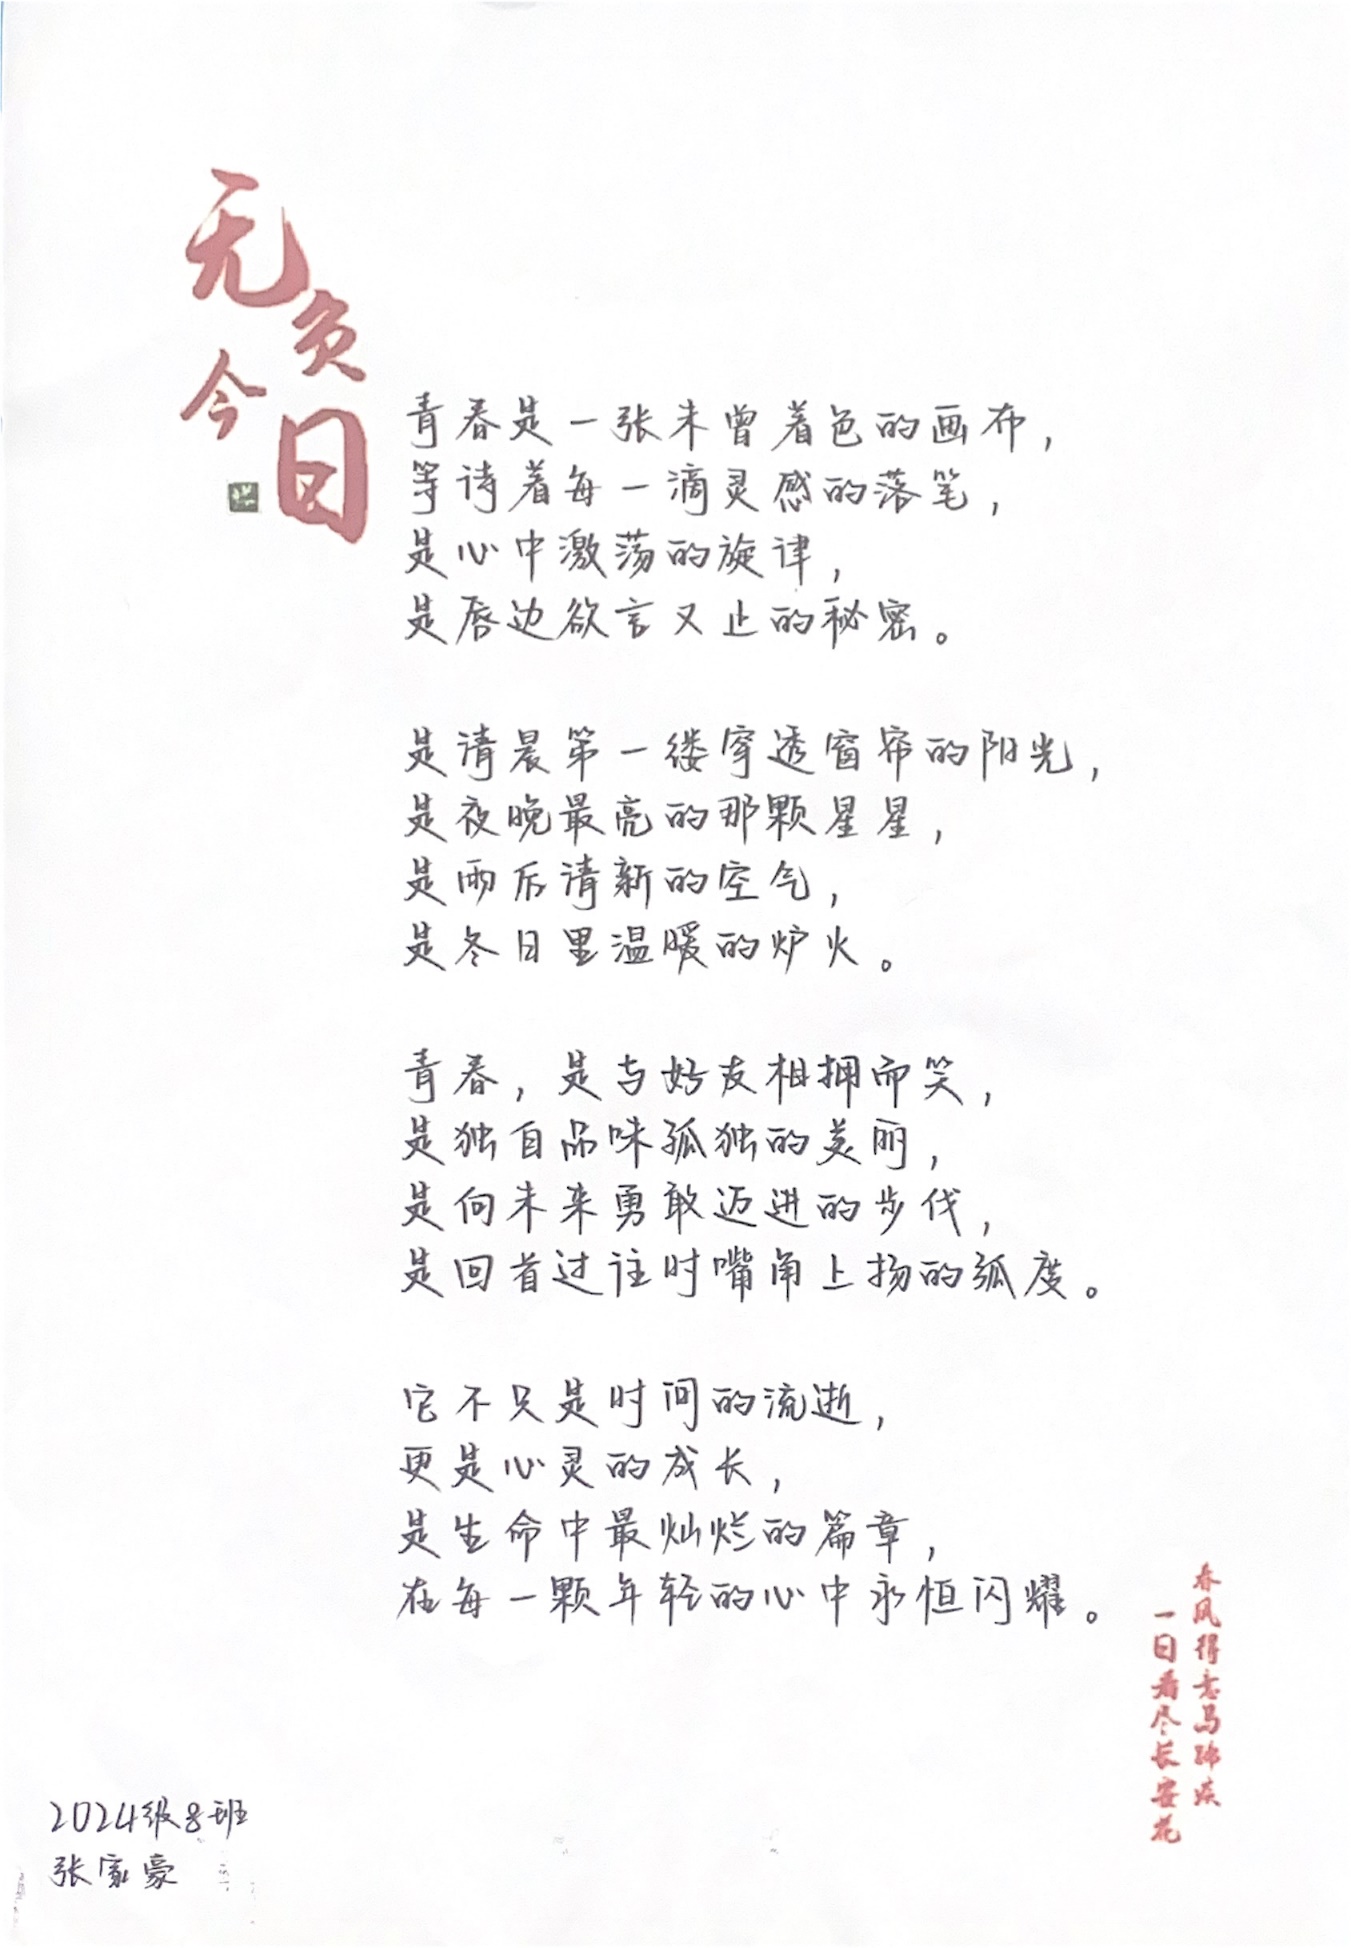 无负今日
青春是一张未曾着色的画布，
等诗着每一滴灵感的落笔，
是心中激荡的旋律，
是唇边欲言又止的秘密。
是清晨第一缕穿透窗帘的阳光，
是夜晚最亮的那颗星星，
是雨后清新的空气，
是冬日里温暖的炉火。
青春，是与好友相拥而笑，
是独自品味孤独的美丽，
是向未来勇敢迈进的步伐，
是回首过往时嘴角上扬的弧度。
它不只是时间的流逝，
更是心灵的成长，
是生命中最灿烂的篇章，
在每一颗年轻的心中永恒闪耀。
春风得意马蹄疾
一日看尽长安花
2024级8班
张家豪